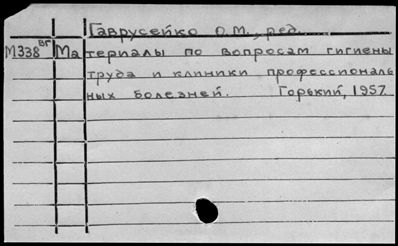 Гаврусейко О.М., ред.
М338вг Материалы по вопросам гигиены
труда и клиники профессиональ
ных болезней. Горький, 1957